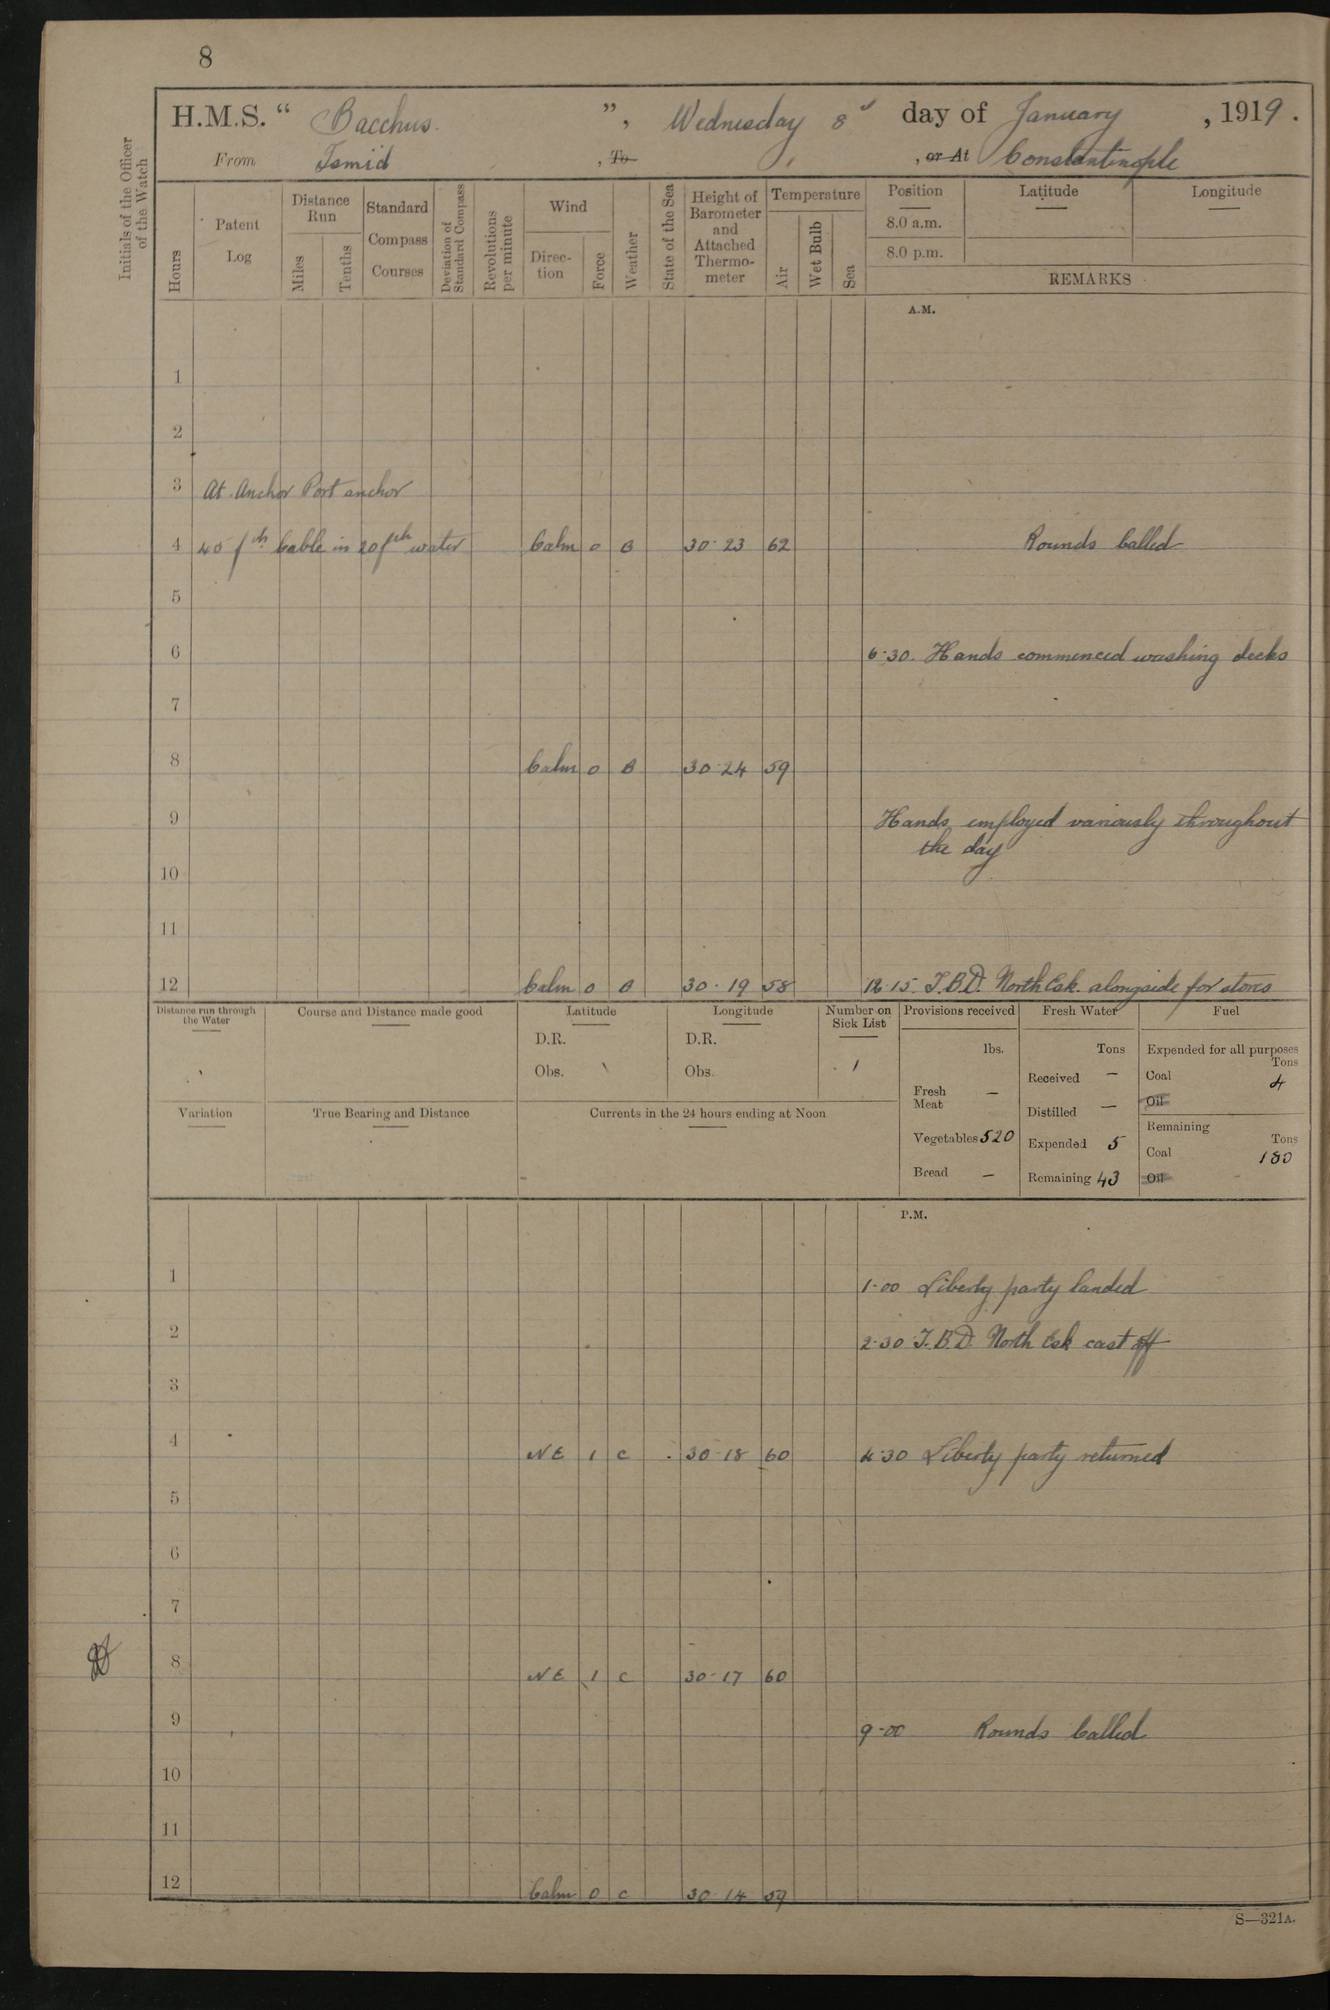 8
H.M.S. “ Bacchus ”, Wednesday 8th day of January, 1919.
From Ismid, To , or At Constantinople
Initials of the Officer of the Watch
Hours
Patent Log
Distance Run
Miles
Tenths
Standard Compass Courses
Deviation of Standard Compass
Revolutions per minute
Wind
Direction
Force
Weather
State of the Sea
Height of Barometer and Attached Thermometer
Temperature
Air
Wet Bulb
Sea
Position
Latitude
Longitude
8.0 a.m.
8.0 p.m.
REMARKS
A.M.
1
2
3 At Anchor Port anchor
4 45 fth Cable in 20 fth water Calm 0 B 30·23 62 Rounds Called
5
6 6·30. Hands commenced washing decks
7
8 Calm 0 B 30·24 59
9 Hands employed variously throughout
the day
10
11
12 Calm 0 B 30·19 58 12·15. T.B.D. North Esk. alongside for stores
Distance run through the Water
Course and Distance made good
Latitude
D.R.
Obs.
Longitude
D.R.
Obs.
Number on Sick List
1
Provisions received
lbs.
Fresh Meat —
Vegetables 520
Bread —
Fresh Water
Tons
Received —
Distilled —
Expended 5
Remaining 43
Fuel
Expended for all purposes
Tons
Coal 4
Oil
Remaining
Tons
Coal 180
Oil
Variation
True Bearing and Distance
Currents in the 24 hours ending at Noon
P.M.
1 1·00 Liberty party landed
2 2·30 T.B.D. North Esk cast off
3
4 NE 1 C 30·18 60 4·30 Liberty party returned
5
6
7
8 NE 1 C 30·17 60
9 9·00 Rounds Called
10
11
12 Calm 0 C 30·14 59
S—321A.